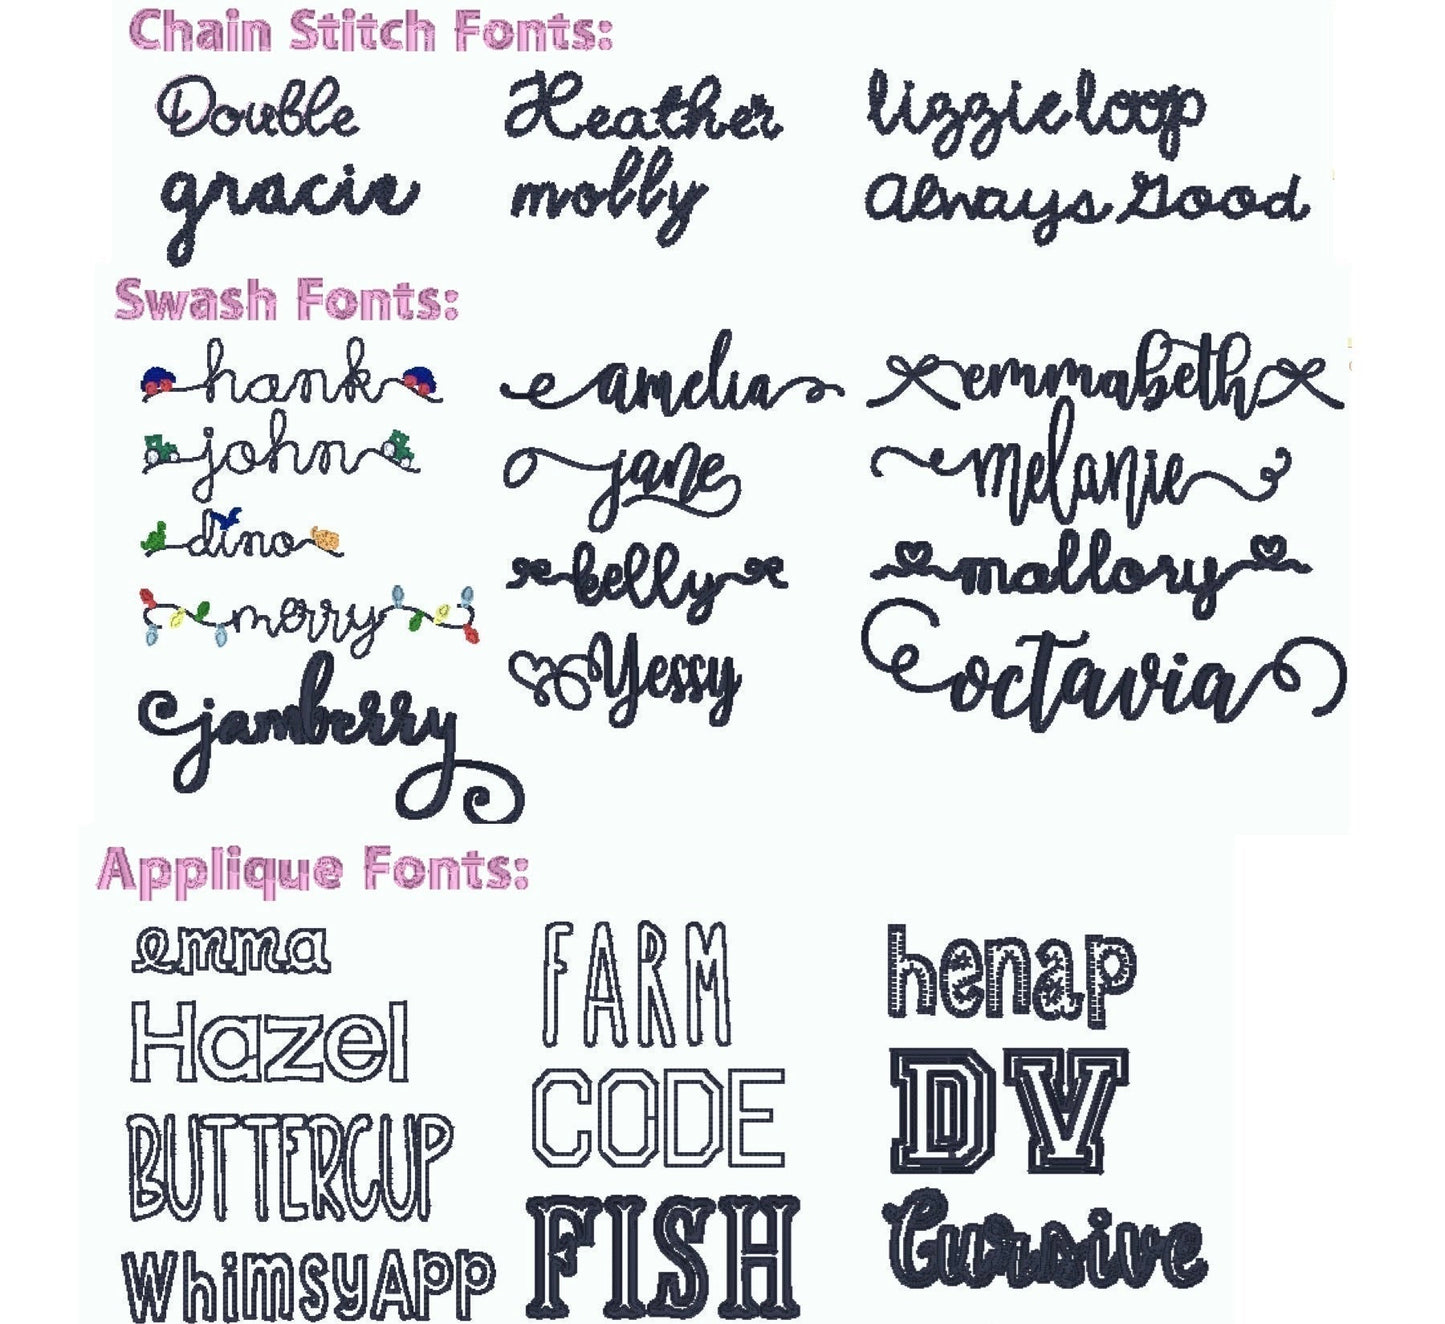 Chain Stitch Fonts:
Double Heather lizzieloop
gracie molly Always Good
Swash Fonts:
hank amelia emmabeth
john jane melanie
dino kelly mallory
merry Yessy octavia
jamberry
Applique Fonts:
emma FARM henap
Hazel CODE DV
BUTTERCUP FISH Cursive
WhimsyApp